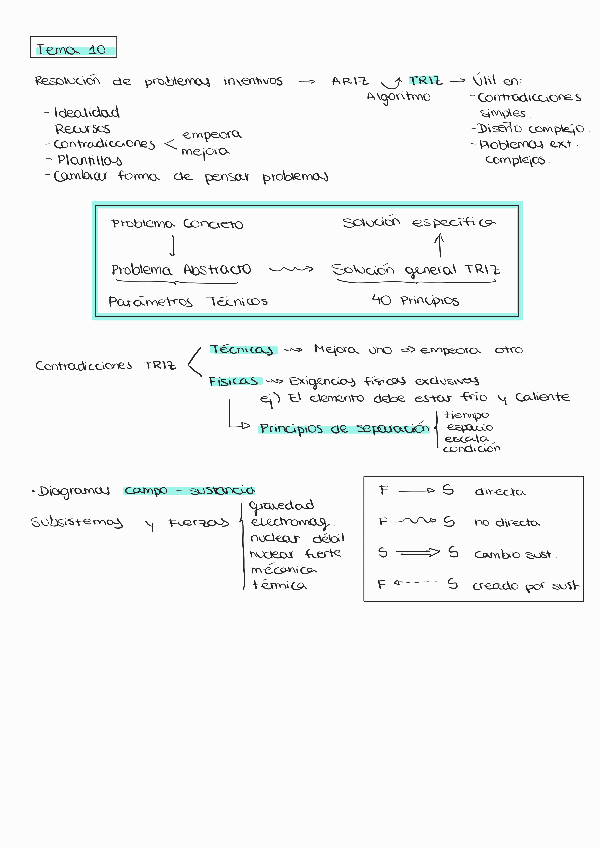 Tema 10
Resolución de problemas inventivos → ARIZ TRIZ → Útil en:
Algoritmo
- Contradicciones simples
- Diseño complejo.
- Problemas ext. complejos.
- Idealidad
Recursos
- Contradicciones < empeora
mejora
- Plantillas
- Cambiar forma de pensar problemas
Problema Concreto
Solución específica
Problema Abstracto → Solución general TRIZ
Parámetros Técnicos
40 Principios
Contradicciones TRIZ
Técnicas → Mejora uno => empeora otro
Físicas → Exigencias físicas exclusivas
ej) El elemento debe estar frío y caliente
→ Principios de separación
tiempo
espacio
escala
condición
· Diagramas campo - sustancia
Subsistemas y Fuerzas
gravedad
electromag.
nuclear débil
nuclear fuerte
mecánica
térmica
F → S directa
F → S no directa
S ⇒ S cambio sust.
F ← S creado por sust